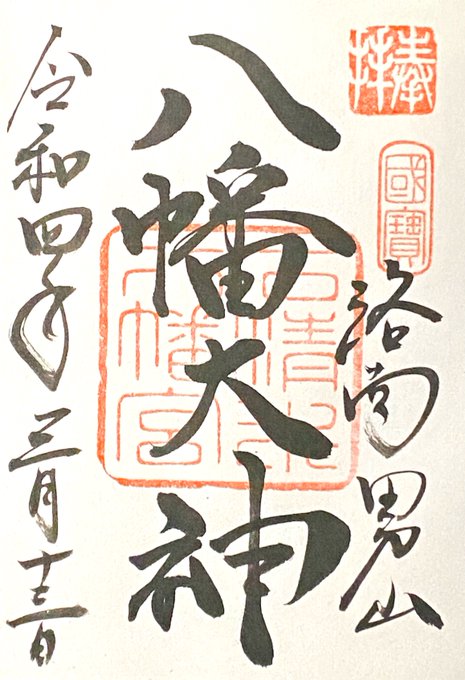 奉拝
國寶
洛南男山
八幡大神
石清水八幡宮
令和四年三月十三日